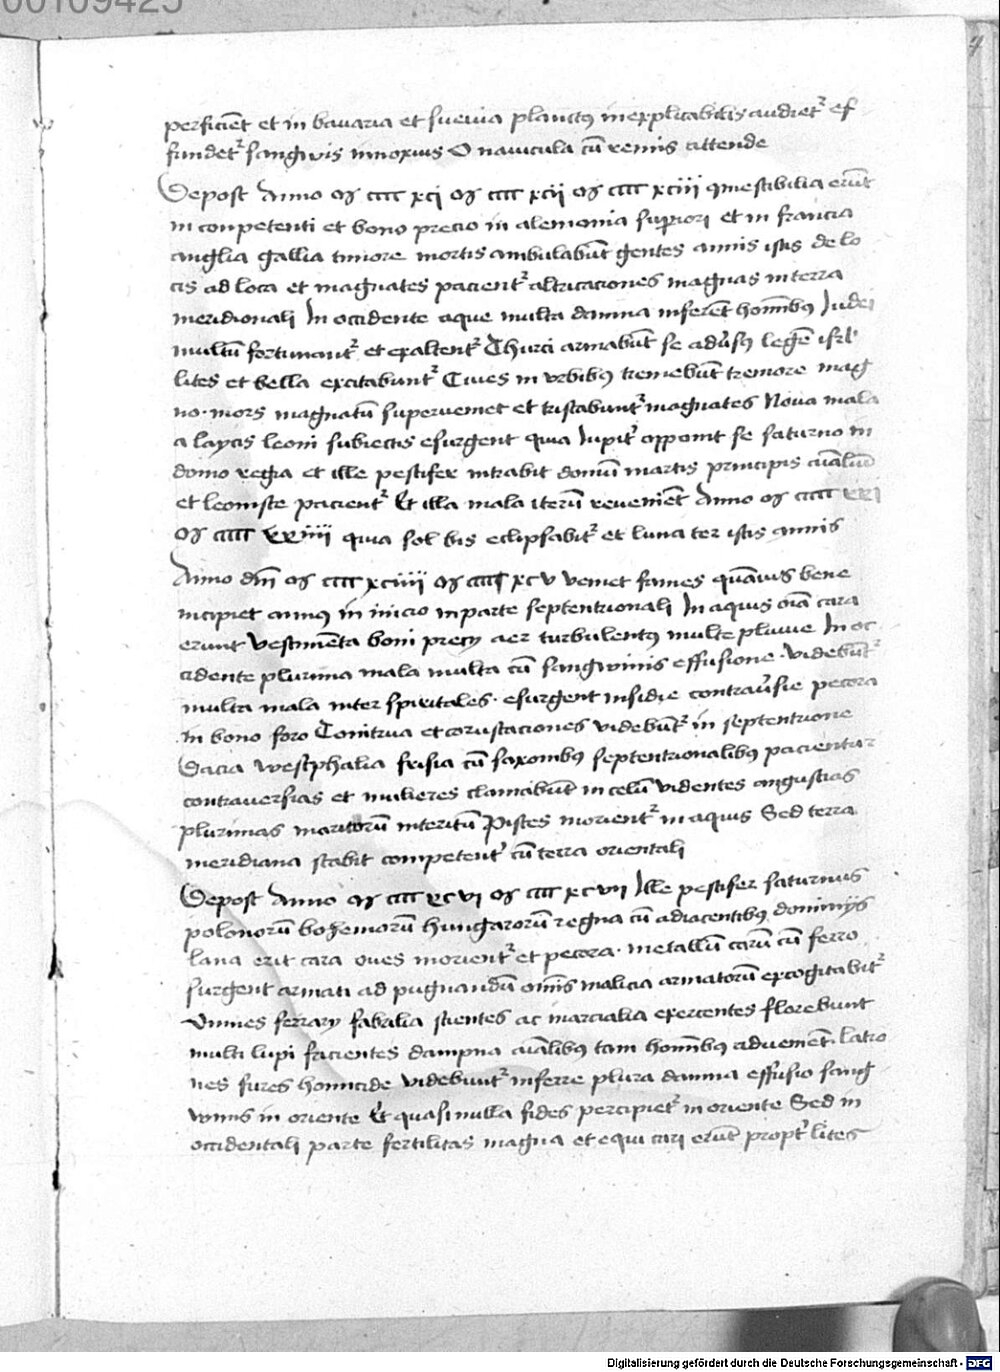 00109425
4
perficiēt et in bavaria et suevia planctꝰ inexplicabilis audietᷣ ef
fundetᷣ sangwis innoxius O navicula cū remis attende
Depost Anno mͦ cccc xcj mͦ cccc xcij mͦ cccc xciij comestibilia erūt
in conpetenti et bono precio in alemonia supriori et in francia
anglia gallia timore mortis ambulabūt gentes annis istis de lo
cis ad loca et magnates pacientᷣ altricaciones magnas in terra
meridionali In occidente aque multa damna inferēt hominibꝰ Judei
multū fortunantᷣ et exaltentᷣ Thurci armabūt se adūsꝰ legē isrl
lites et bella excitabuntᷣ Cives in urbibꝰ tremebūt tremore mag
no · mors magnatū superveniet et tristabuntᷣ magnates Nova mala
a laycis leoni subiectis exurgent quia Jupitᷣ opponit se saturno in
domo regia et ille pestifer intrabit domū martis principis
et leoniste pacientᷣ Et illa mala iterū reveniēt Anno mͦ ccccc xxj
mͦ ccccc xxiiij quia sol bis eclipsabitᷣ et luna ter istis annis
Anno dn̄i mͦ cccc xciiij mͦ cccc xcv veniet fames quāvis bene
incipiet annꝰ in inicio in parte septentrionali In aquis oīa cara
erunt vestimēta boni precij aer turbulentꝰ multe pluvie In oc
cidente plurima mala multa cū sangwinis effusione · videbūtᷣ
multa mala inter spiritales · exurgent insidie contraūsie pecora
in bono foro Tonitrua et coruscaciones videbūtᷣ in septentrione
Dacia westphalia frisia cū saxonibꝰ septentrionalibꝰ pacientur
contraversias et mulieres clamabūt in celū videntes angustias
plurimas maritorū interitū Pisces morientᷣ in aquis Sed terra
meridiana stabit competentᷣ cū terra orientali
Depost Anno mͦ cccc xcvi mͦ cccc xcvii Ille pestifer saturnus
polonorū bohemorū hungarorū regna cū adiacentibꝰ dominijs
lana erit cara oves morientᷣ et pecora · metallū carū cū ferro
surgent armati ad pugnandū om̄is malicia armatorū excogitabitᷣ
Omnes ferrarij fabalia scientes ac marcialia exercentes florebunt
multi lupi facientes dampna aīalibus tam hominibꝰ advenient · latro
nes fures homicide videbuntᷣ inferre plura damna effusio sang
winis in oriente Et quasi nulla fides percipietᷣ in oriente Sed in
occidentali parte fertilitas magna et equi cari erūt proptᷣ lites
Digitalisierung gefördert durch die Deutsche Forschungsgemeinschaft - DFG